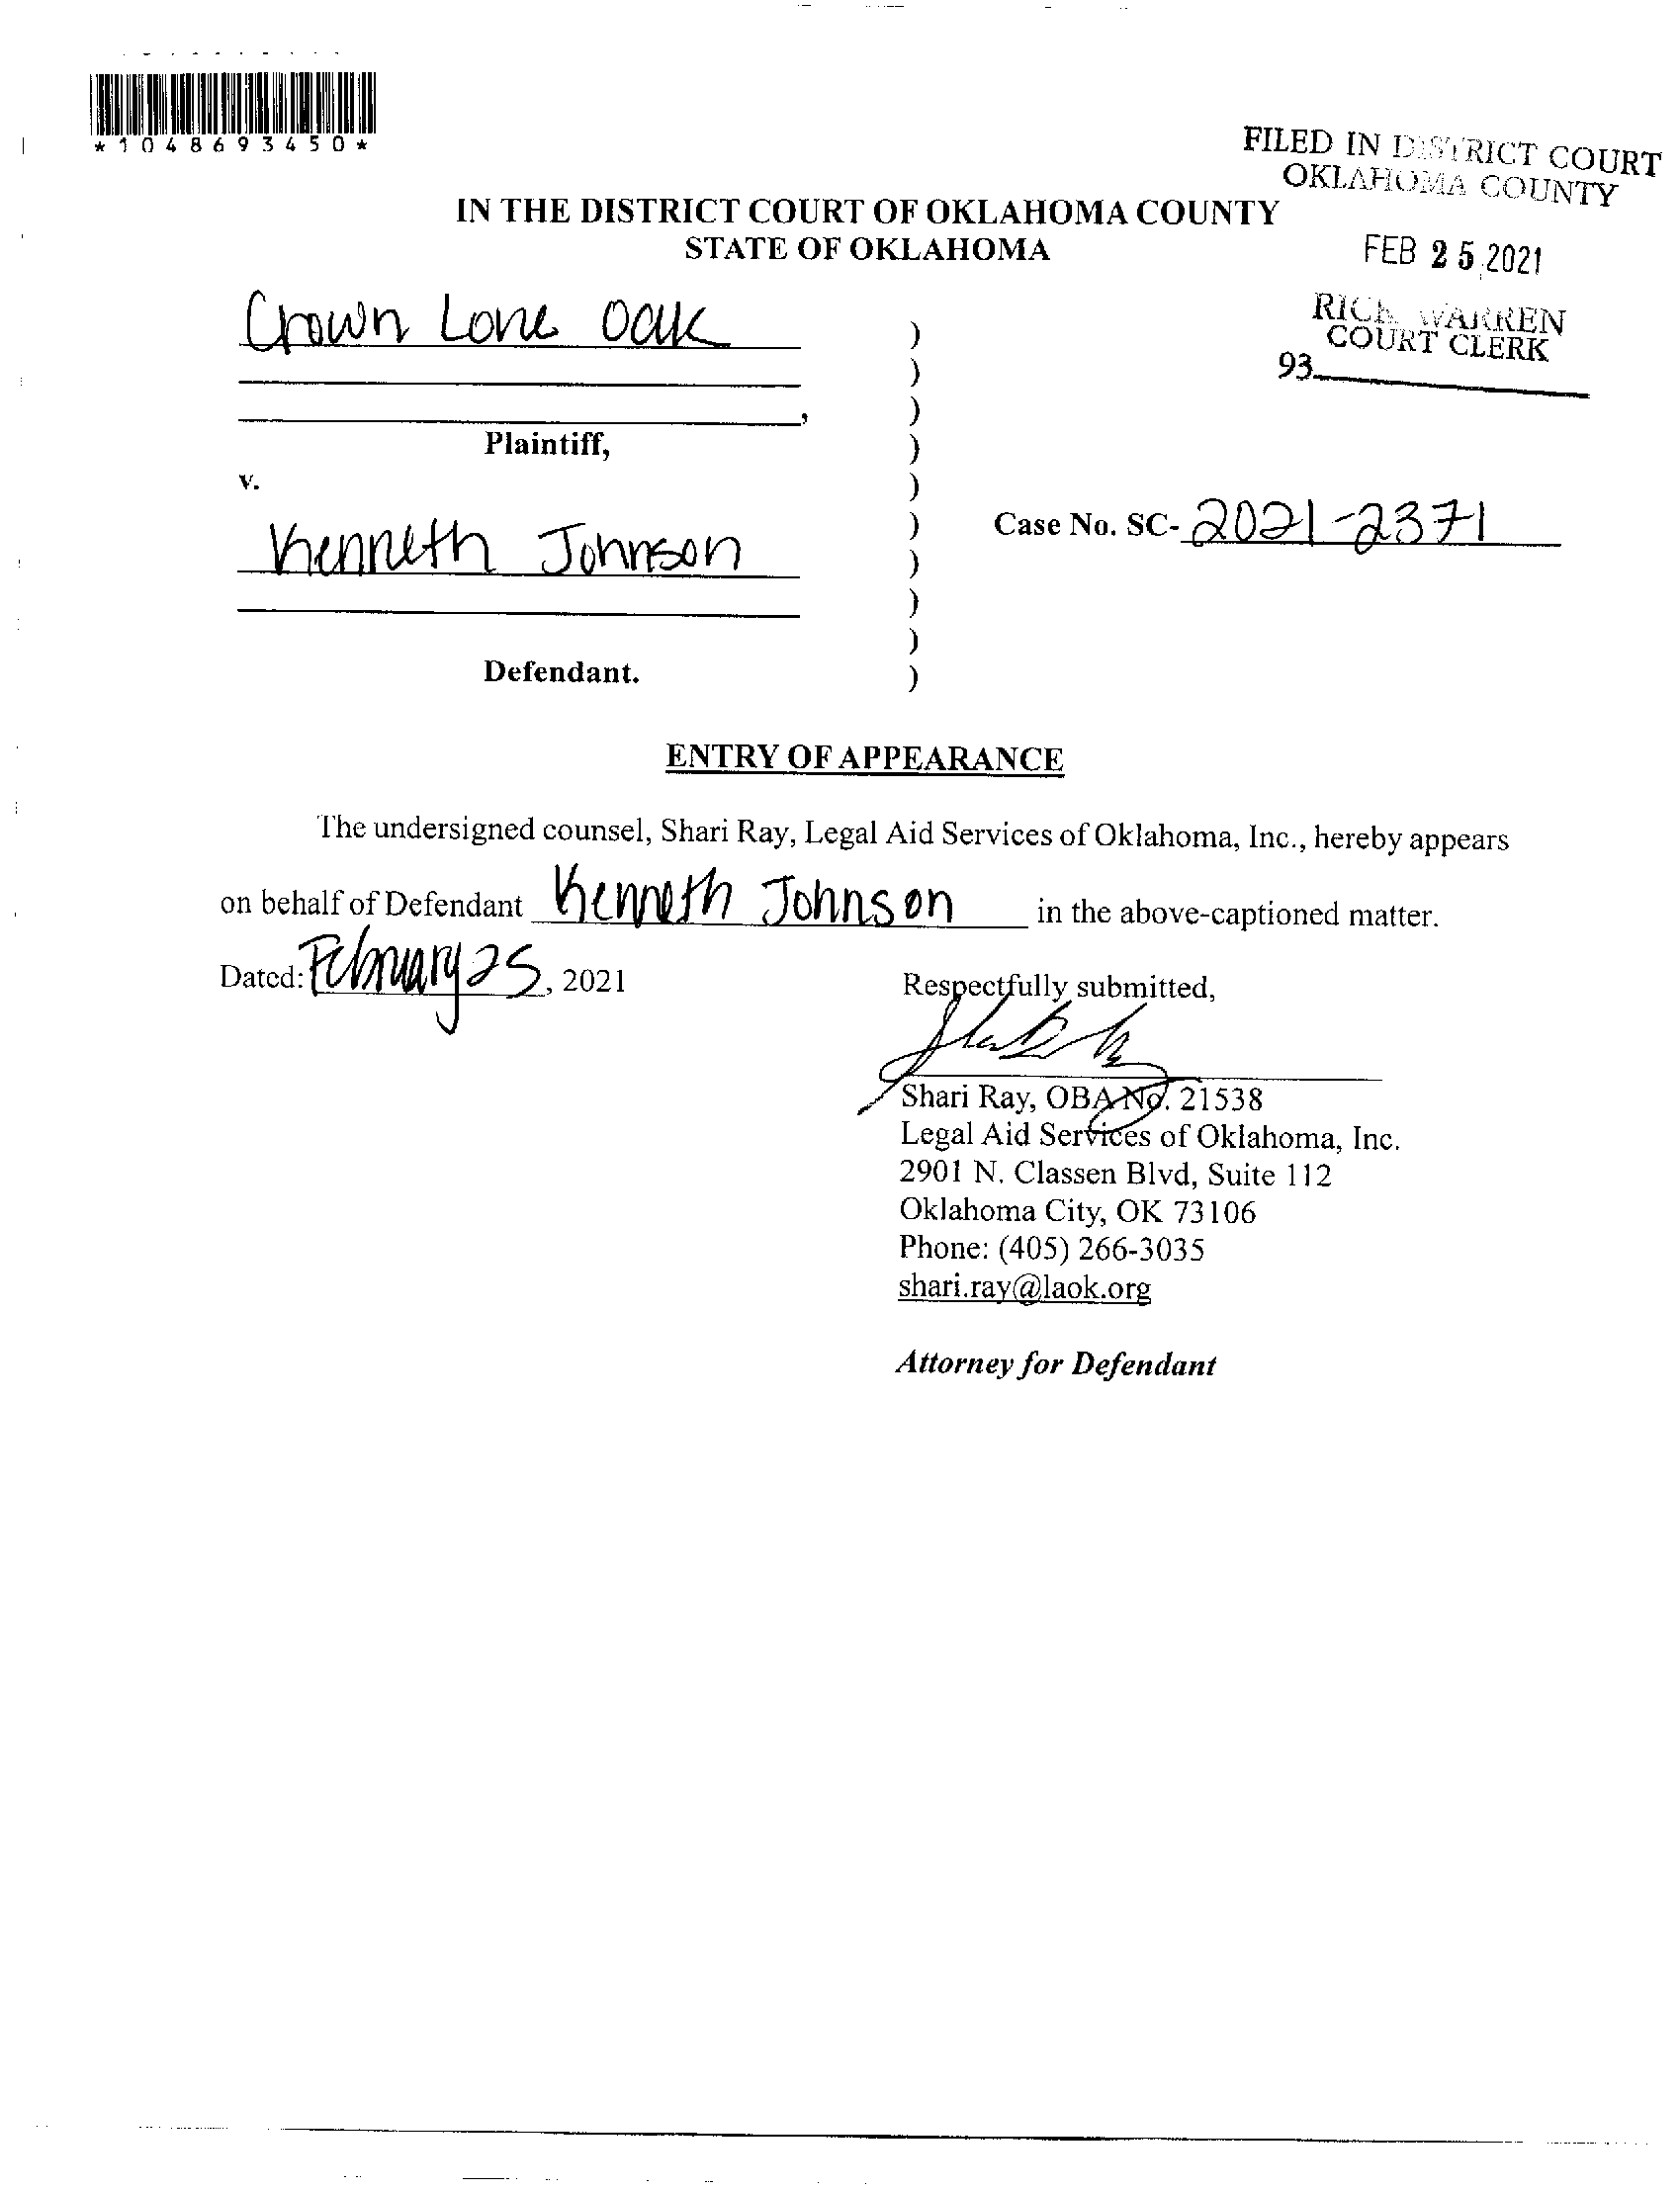 *1048693450*
FILED IN DISTRICT COURT
OKLAHOMA COUNTY
IN THE DISTRICT COURT OF OKLAHOMA COUNTY
STATE OF OKLAHOMA
FEB 25 2021
RICK WARREN
COURT CLERK
93
Crown Lone Oak
)
)
, )
Plaintiff, )
v. )
Kenneth Johnson ) Case No. SC- 2021-2371
)
)
)
Defendant. )
ENTRY OF APPEARANCE
The undersigned counsel, Shari Ray, Legal Aid Services of Oklahoma, Inc., hereby appears
on behalf of Defendant Kenneth Johnson in the above-captioned matter.
Dated: February 25, 2021
Respectfully submitted,
Shari Ray, OBA No. 21538
Legal Aid Services of Oklahoma, Inc.
2901 N. Classen Blvd, Suite 112
Oklahoma City, OK 73106
Phone: (405) 266-3035
shari.ray@laok.org
Attorney for Defendant